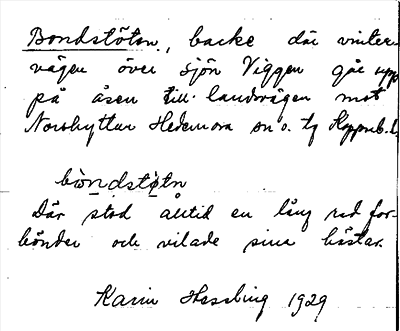 Bondstöten, backe där vinter-
vägen över sjön Viggen går upp
på åsen till landsvägen mot
Norshyttan Hedemora sn o. tg Kopparb. l.
bòndstø̀tn
Där stod alltid en lång rad for-
bönder och vilade sina hästar.
Karin Hessling 1929